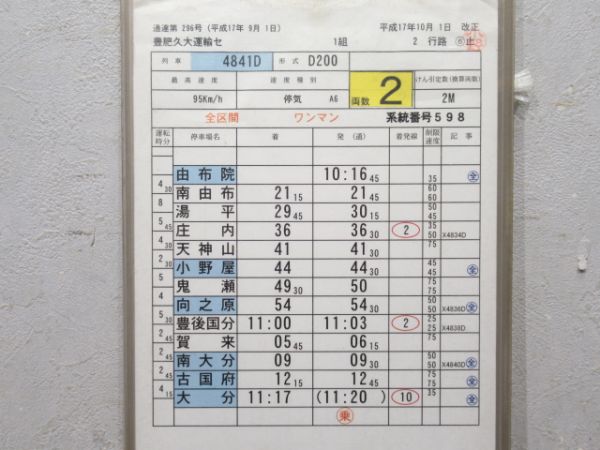 通達第 296号（平成17年 9月 1日） 平成17年10月 1日 改正
豊肥久大運輸セ 1組 2 行路
列車 4841D 形式 D200
最高速度 速度種別 両数 2 けん引定数(換算両数)
95Km/h 停気 A6 2M
全区間 ワンマン 系統番号598
運転時分 停車場名 着 発（通） 着発線 制限速度 記事
由布院 10:16 45 35 全
4 30 南由布 21 15 21 45 60 60
8 湯平 29 45 30 15 50 45
5 45 庄内 36 36 30 2 35 50 X4834D
4 30 天神山 41 41 30 75
2 30 小野屋 44 44 30 45 45 全
5 鬼瀬 49 30 50 75 75
4 向之原 54 54 30 50 50 X4836D 全
5 30 豊後国分 11:00 11:03 2 25 25 X4838D
2 45 賀来 05 45 06 15 75
2 45 南大分 09 09 30 50 50 X4840D 全
2 45 古国府 12 15 12 45 75 75 全
4 15 大分 11:17 (11:20 ) 10 35 全
乗